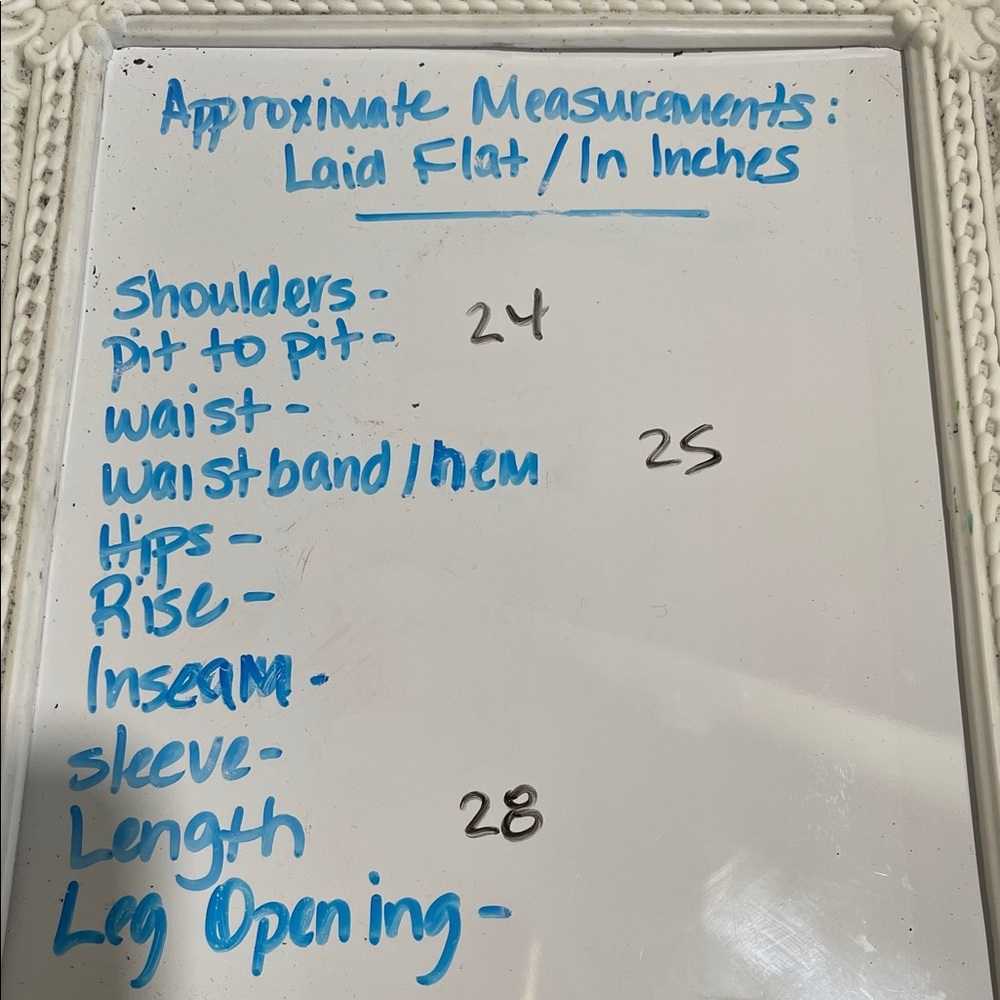 Approximate Measurements:
Laid Flat / In Inches
Shoulders -
pit to pit - 24
waist -
waistband / hem 25
Hips -
Rise -
Inseam -
sleeve -
Length 28
Leg Opening -